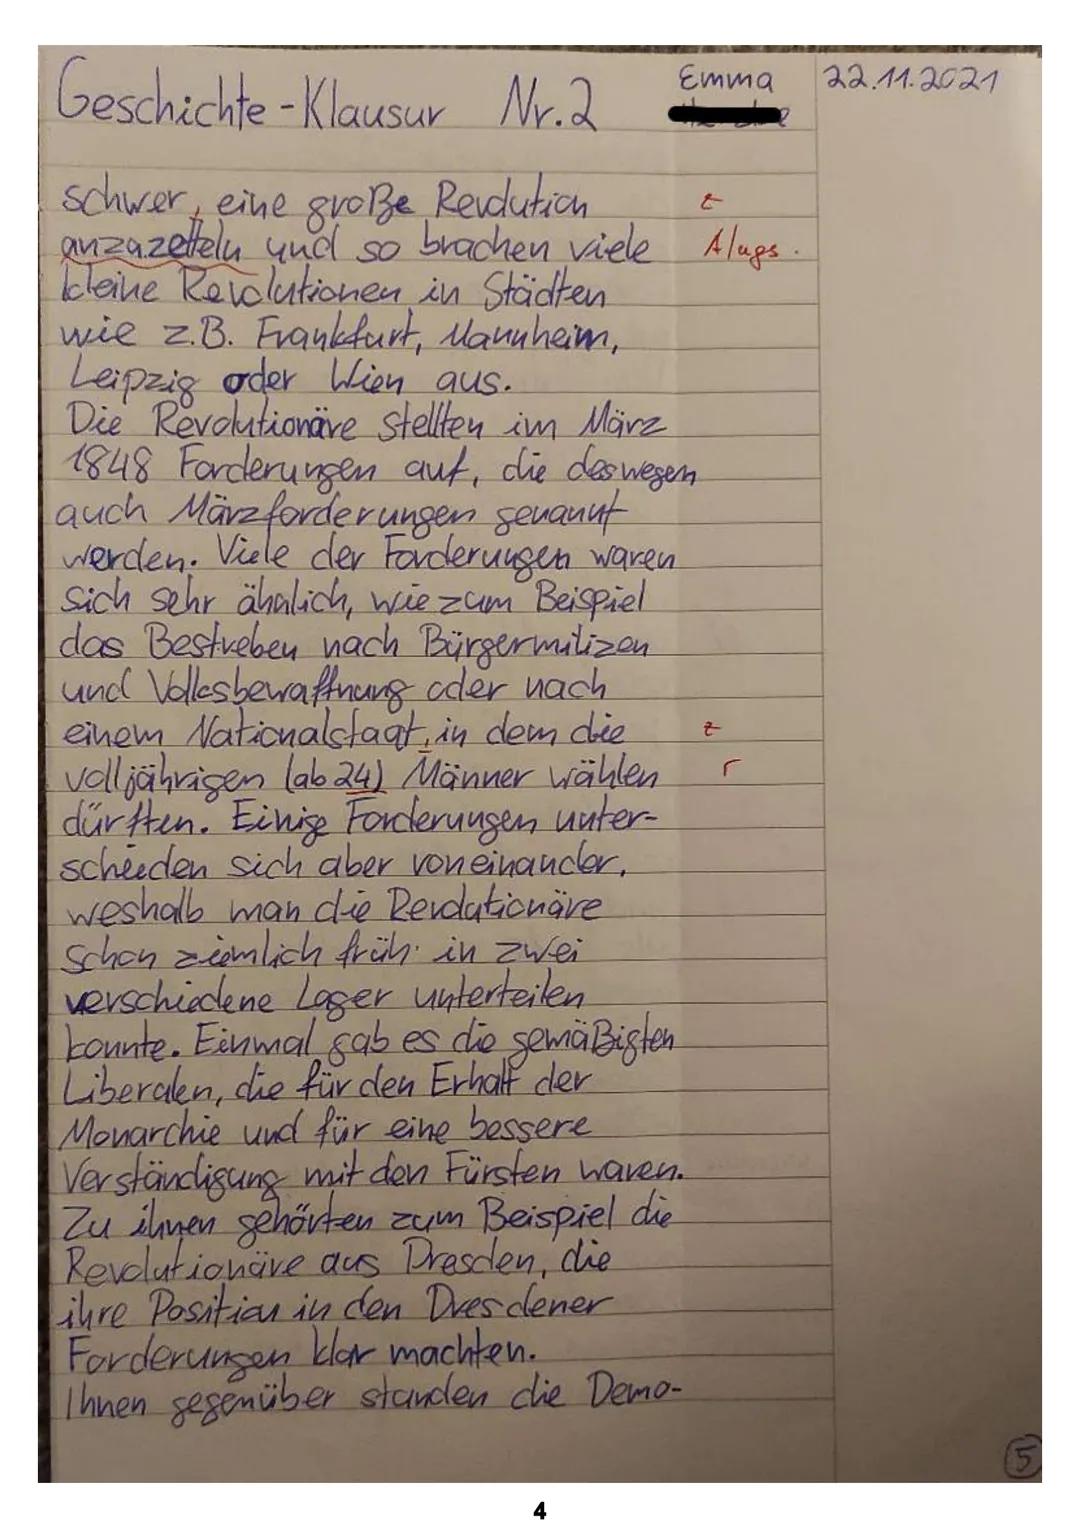 Geschichte-Klausur Nr. 2 Emma 22.11.2021
schwer, eine große Revolution z
anzazetteln und so brachen viele A/ugs.
kleine Revolutionen in Städten
wie z.B. Frankfurt, Mannheim,
Leipzig oder Wien aus.
Die Revolutionäre stellten im März
1848 Forderungen auf, die deswegen
auch Märzforderungen genannt
werden. Viele der Forderungen waren
sich sehr ähnlich, wie zum Beispiel
das Bestreben nach Bürgermilizen
und Volksbewaffnung oder nach
einem Nationalstaat, in dem die z
volljährigen (ab 24) Männer wählen r
dürften. Einige Forderungen unter-
schieden sich aber voneinander,
weshalb man die Revolutionäre
schon ziemlich früh in zwei
verschiedene Lager unterteilen
konnte. Einmal gab es die gemäßigten
Liberalen, die für den Erhalt der
Monarchie und für eine bessere
Verständigung mit den Fürsten waren.
Zu ihnen gehörten zum Beispiel die
Revolutionäre aus Dresden, die
ihre Position in den Dresdener
Forderungen klar machten.
Ihnen gegenüber standen die Demo-
5
4